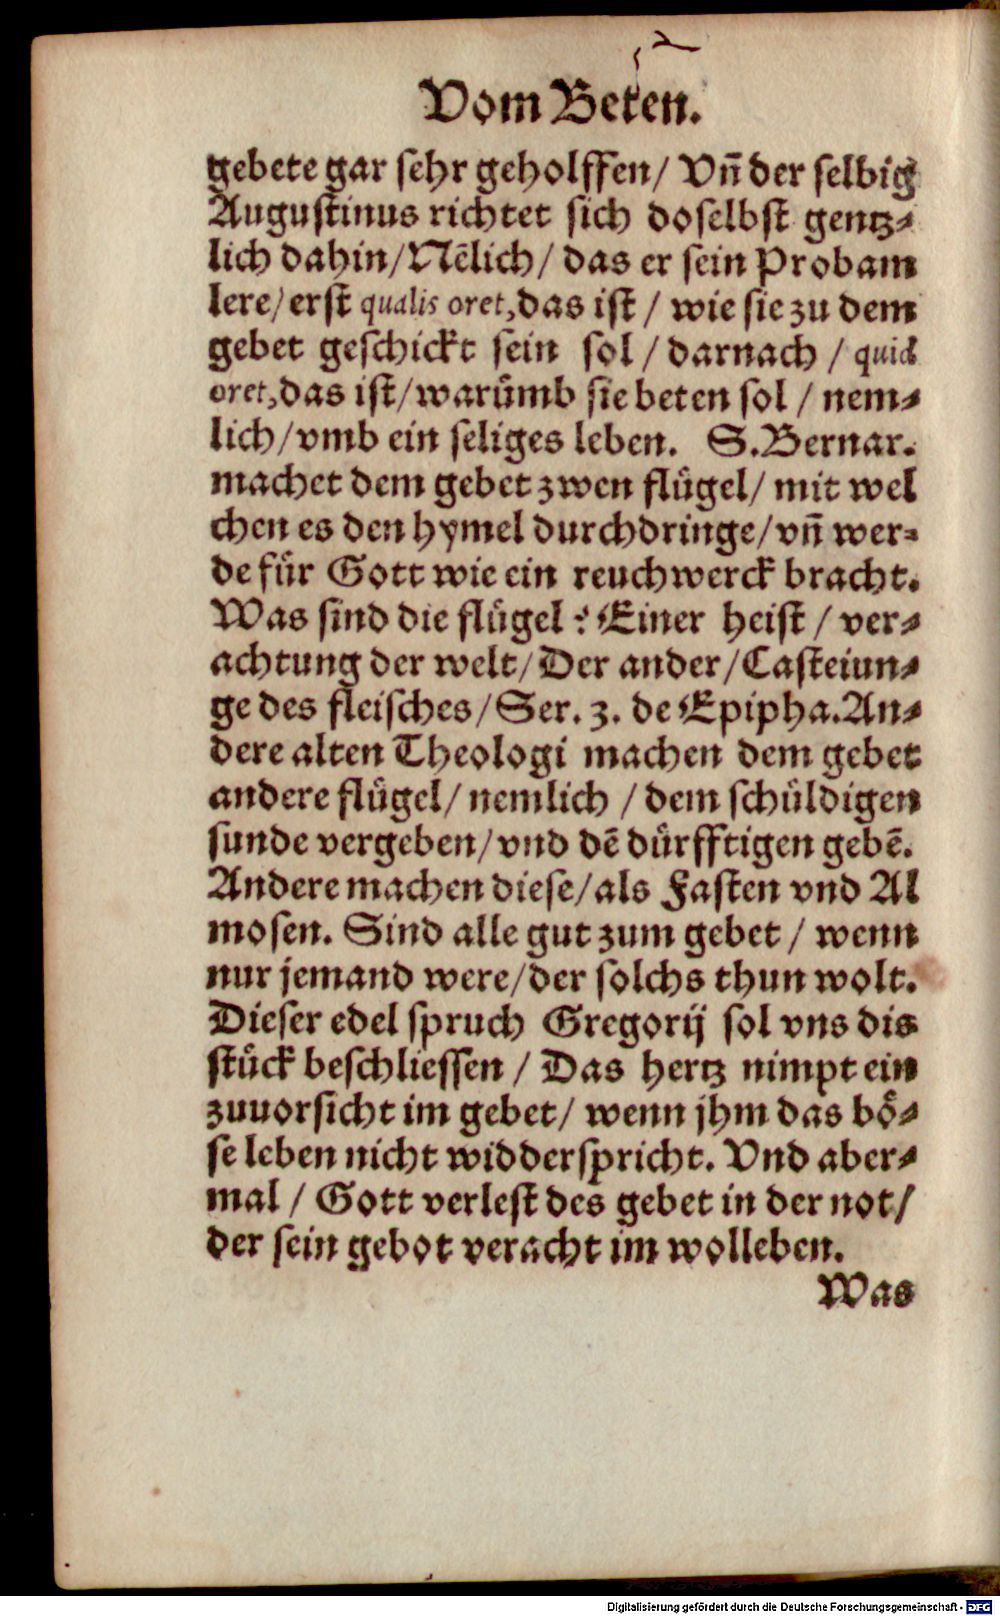 Vom Beten.
gebete gar sehr geholffen/ Vñ der selbig
Augustinus richtet sich doselbst gentz-
lich dahin/Nẽlich/ das er sein Probam
lere/erst qualis oret,das ist / wie sie zu dem
gebet geschickt sein sol / darnach / quid
oret,das ist/warümb sie beten sol / nem-
lich/vmb ein seliges leben. S.Bernar.
machet dem gebet zwen flügel/ mit wel
chen es den hymel durchdringe/vñ wer-
de für Gott wie ein reuchwerck bracht.
Was sind die flügel? Einer heist / ver-
achtung der welt/Der ander/Casteiun-
ge des fleisches/Ser. 3. de Epipha.An-
dere alten Theologi machen dem gebet
andere flügel/ nemlich / dem schüldigen
sunde vergeben/vnd dẽ dürfftigen gebẽ.
Andere machen diese/als Fasten vnd Al
mosen. Sind alle gut zum gebet / wenn
nur jemand were/der solchs thun wolt.
Dieser edel spruch Gregorij sol vns dis
stück beschliessen / Das hertz nimpt ein
zuuorsicht im gebet/ wenn jhm das bö-
se leben nicht widderspricht. Vnd aber-
mal / Gott verlest des gebet in der not/
der sein gebot veracht im wolleben.
Was
Digitalisierung gefördert durch die Deutsche Forschungsgemeinschaft - DFG